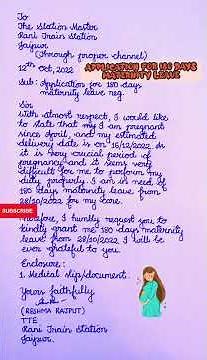 To
The Station Master
Rani Train Station
Jaipur
(through proper channel)
12th Oct, 2022
APPLICATION FOR 180 DAYS
MATERNITY LEAVE
Sub: Application for 180 days
maternity leave reg.
Sir
With utmost respect, I would like
to state that I am pregnant
since April, and my estimated
delivery date is on 16/12/2022. As
it is very crucial period of
pregnancy and it seems very
difficult for me to perform my
duty properly. I am in need of
180 days maternity leave from
28/10/2022 for my care.
SUBSCRIBE
Therefore, I humbly request you to
kindly grant me 180 days maternity
leave from 28/10/2022. I will be
ever grateful to you.
Enclosure:
1. Medical slip/document.
Yours faithfully
(RESHMA RAJPUT)
TTE
Rani Train Station
Jaipur.